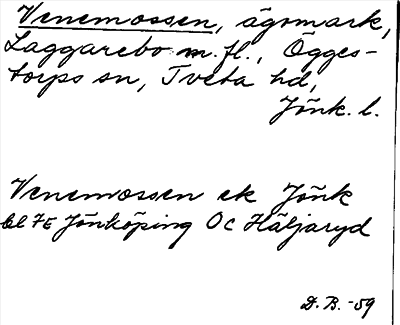 Venemossen, ägomark,
Laggarebo m. fl., Ögges-
torps sn, Tveta hd,
Jönk. l.
Venemossen ek Jönk
bl 7E Jönköping OC Häljaryd
D. B. -59